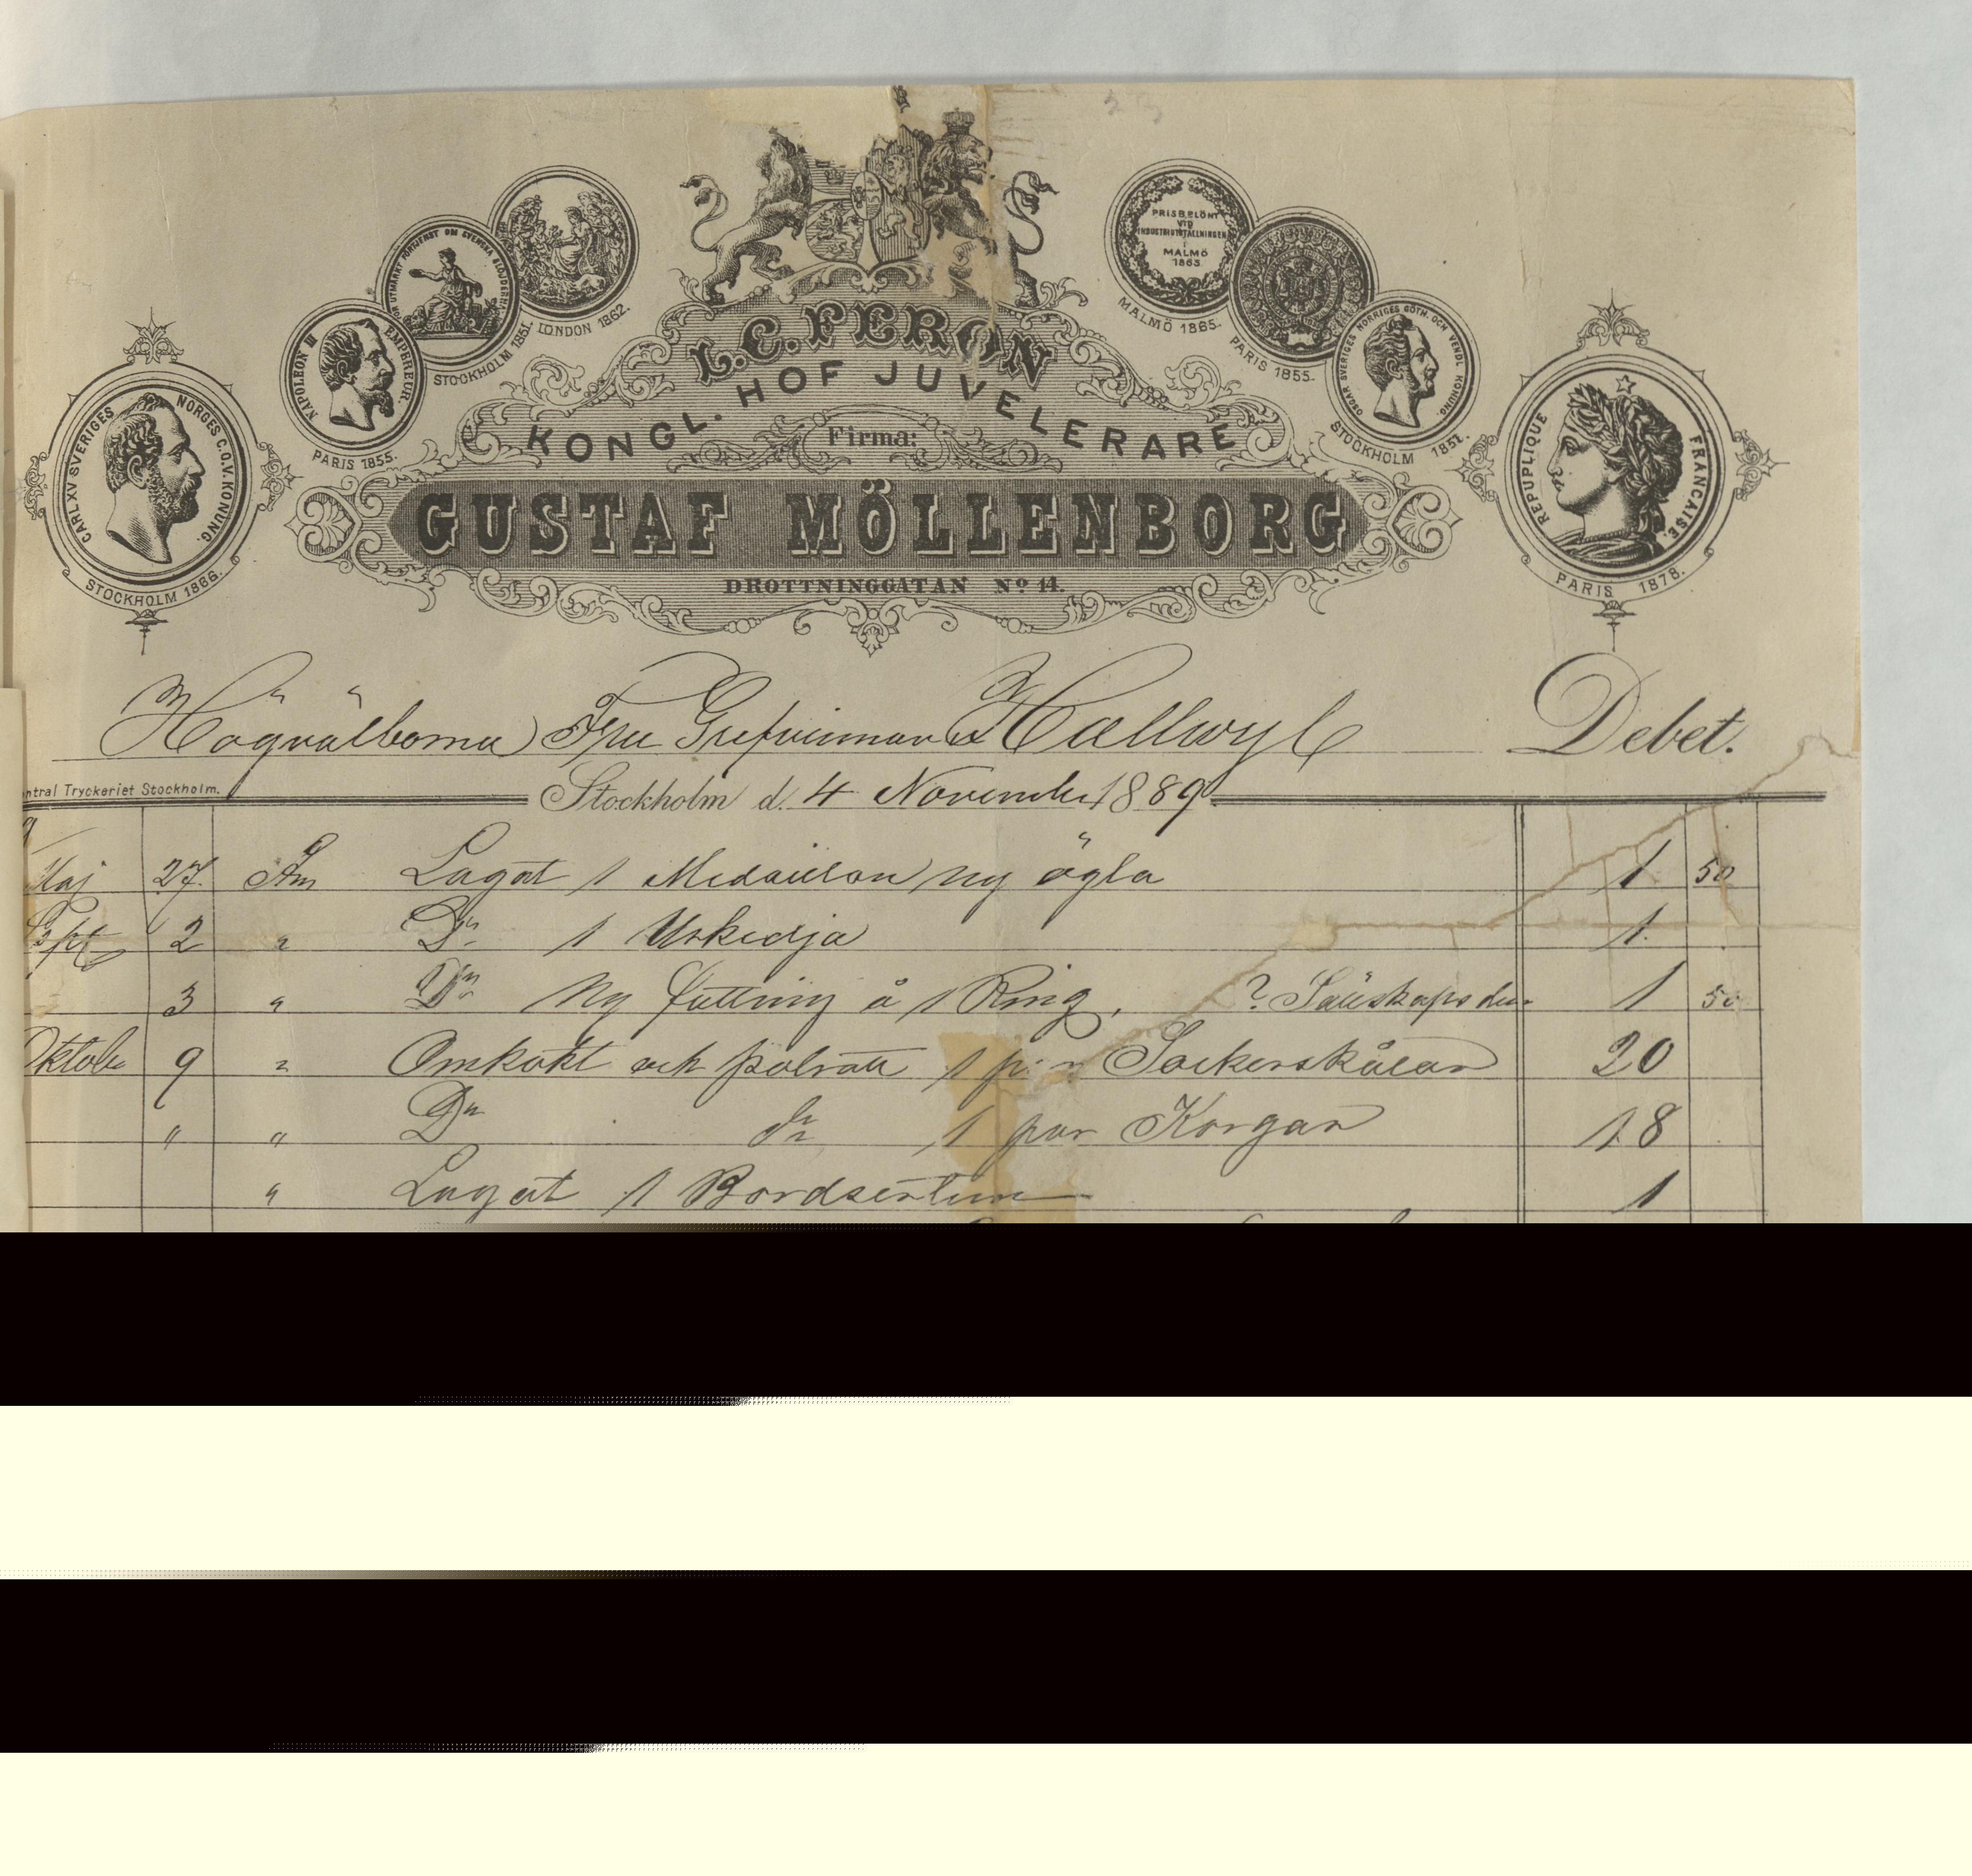 L. C. FERON
KONGL. HOF JUVELERARE
Firma:
GUSTAF MÖLLENBORG
DROTTNINGGATAN No 14.
CARL XV SVERIGES NORGES G.O.V. KONUNG.
STOCKHOLM 1866.
NAPOLEON III EMPEREUR.
PARIS 1855.
FÖR UTMÄRKT FÖRTJENST OM SVENSKA SLÖJDERNA
STOCKHOLM 1851.
LONDON 1862.
PRISBELÖNT
VID
INDUSTRIUTSTÄLLNINGEN
I
MALMÖ
1865.
MALMÖ 1865.
PARIS 1855.
OSCAR SVERIGES NORRIGES GÖTH. OCH VENDL. KONUNG.
STOCKHOLM 1851.
REPUBLIQUE FRANCAISE.
PARIS 1878.
Högvälborna Fru Grefvinnan Hallwyl Debet.
ntral Tryckeriet Stockholm.
Stockholm d. 4 November 1889
Maj 27. Am Lagat 1 Medaillon ny ögla 1 50
Sept 2 " Do 1 Urkedja 1.
3 " Do Ny fattning å 1 Ring, ? 1 50
Oktob 9 " Omkokt och polerat 1 Sockerskålar 20
" " Do do 1 par Korgar 18
" Lagat 1 Bordsertum 1